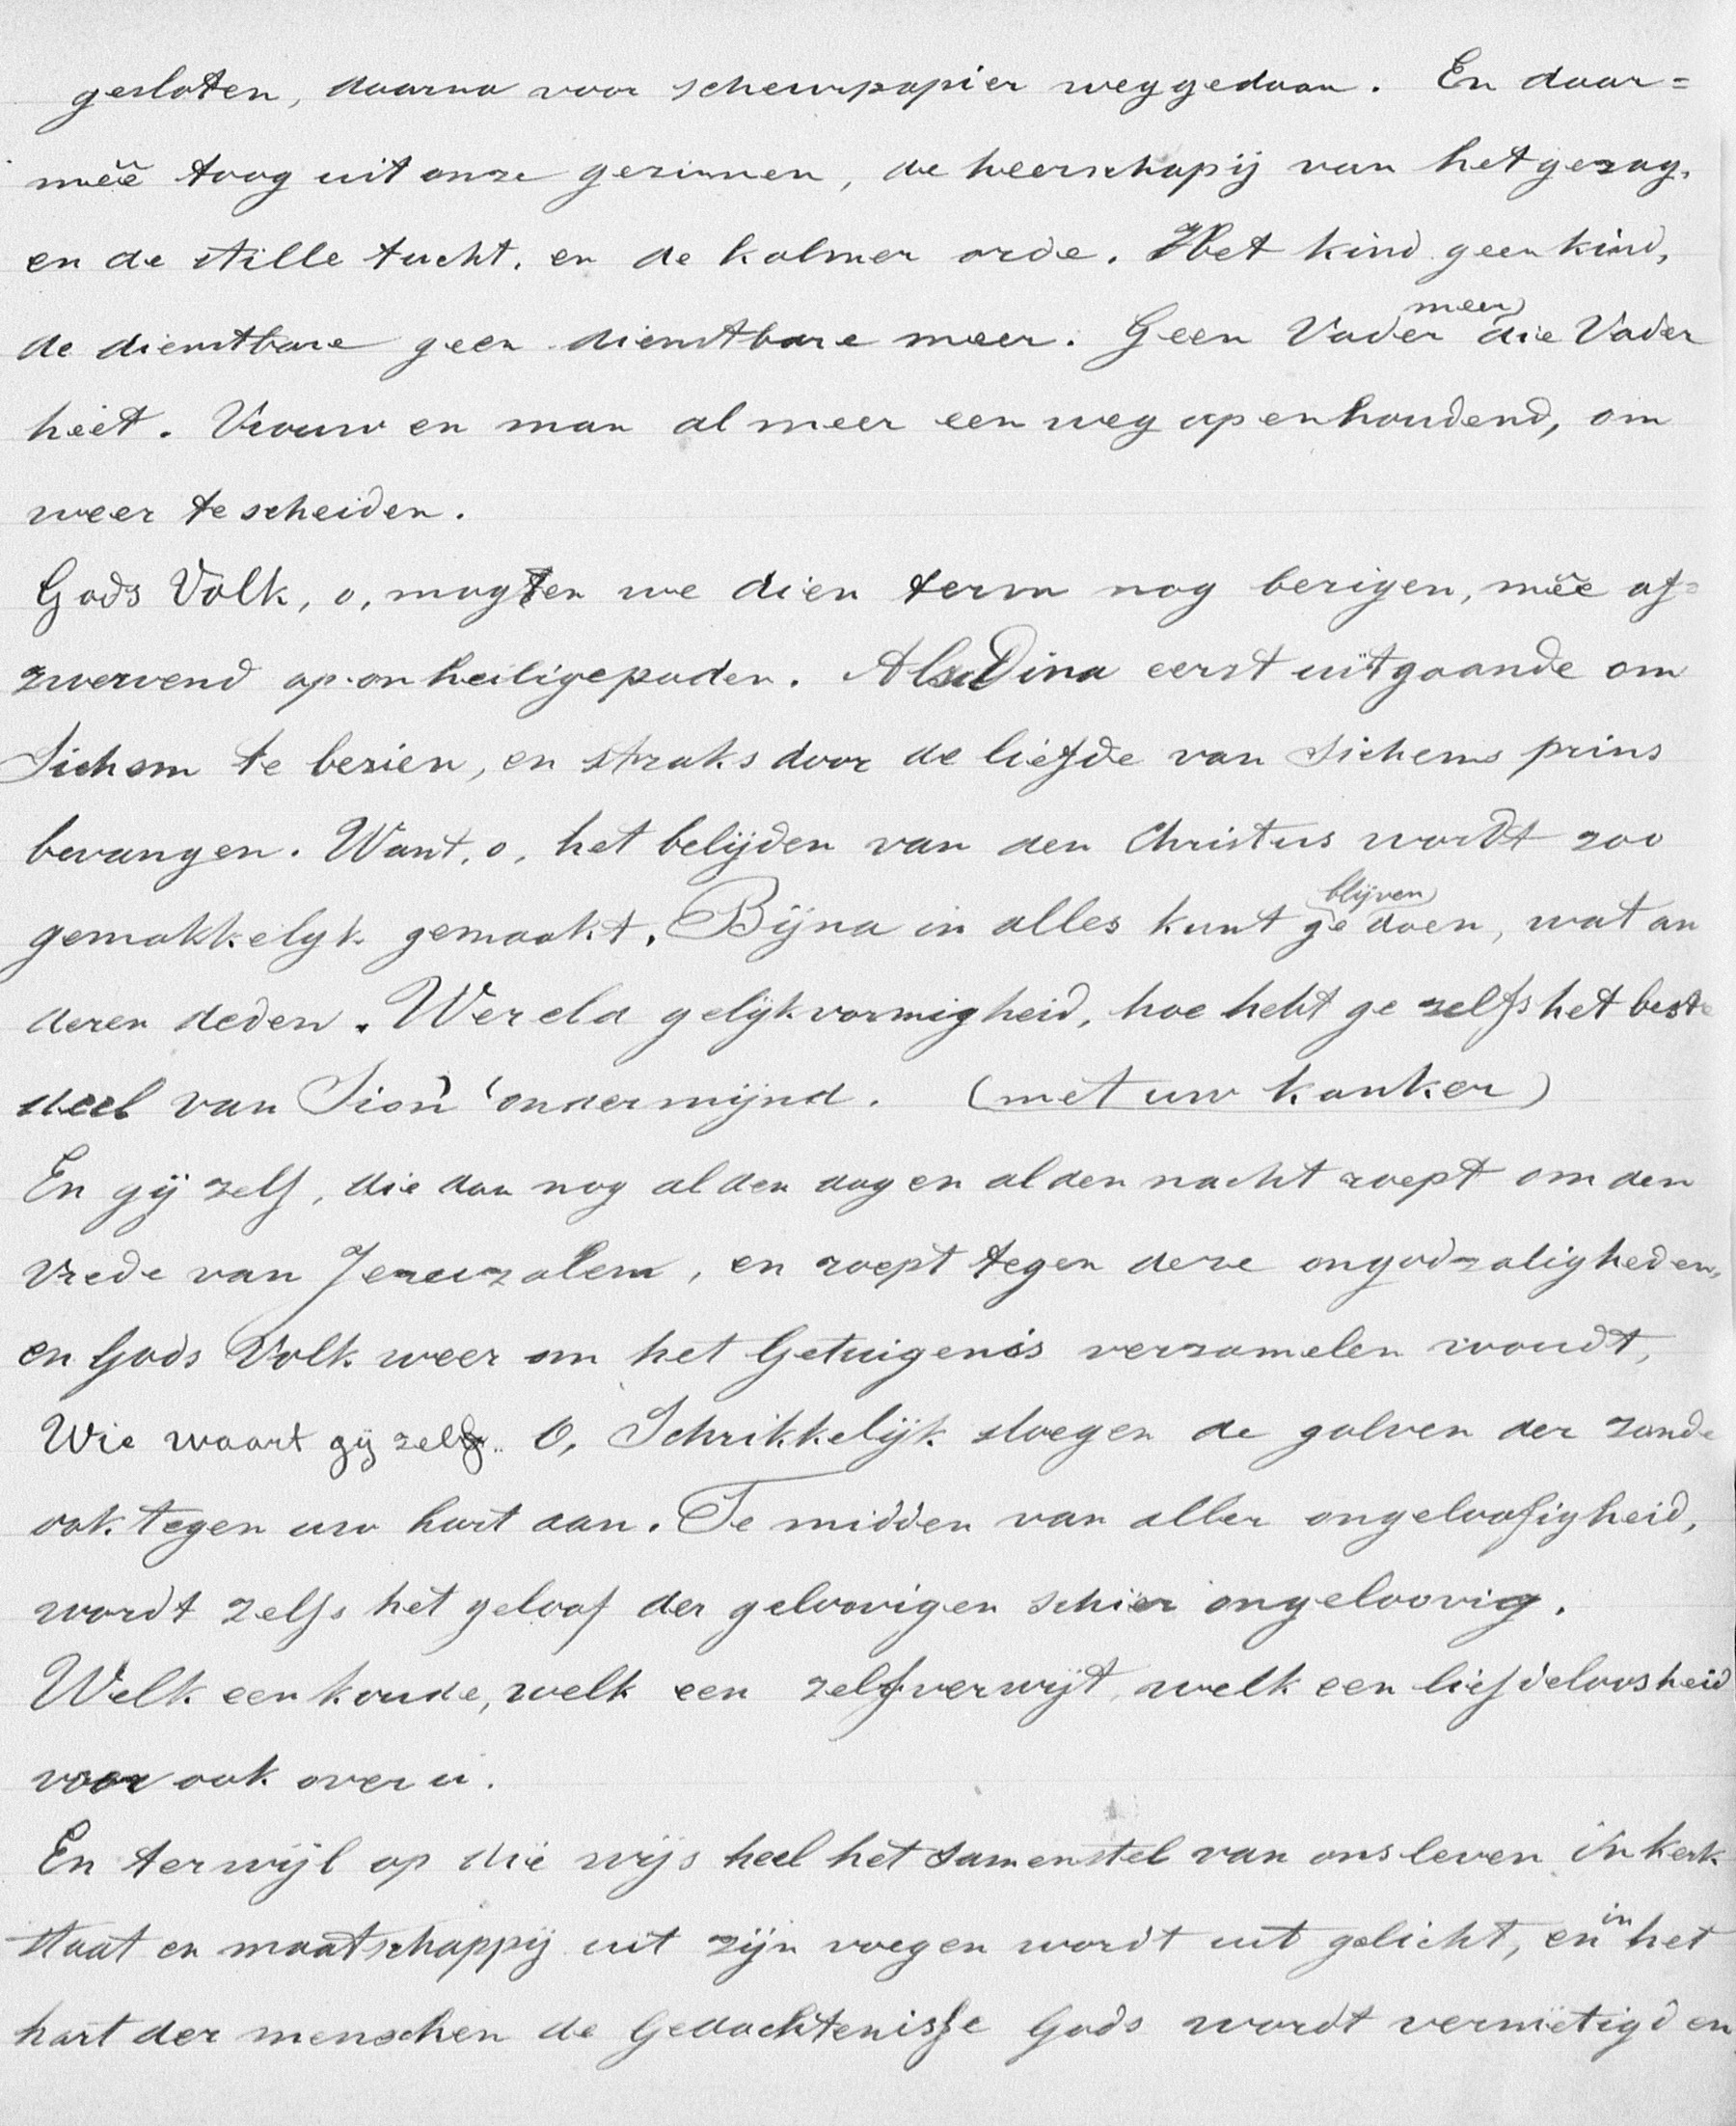 gesloten, daarna voor scheurpapier weggedaan. En daar=
meê toog uit onze gezinnen, de heerschapij van het gezag,
en de stille tucht, en de kalmer orde. Het kind geen kind,
de dienstbare geen dienstbare meer. Geen Vader meer die Vader
heet. Vrouw en man al meer een weg openhoudend, om
weer te scheiden.
Gods Volk, o, mogten we dien term nog bezigen, meê af=
zwervend op onheilige paden. Als Dina eerst uitgaande om
Sichem te bezien, en straks door de liefde van Sichems prins
bevangen. Want, o, het belijden van den Christus wordt zoo
gemakkelijk gemaakt. Bijna in alles kunt ge blijven doen, wat an
deren deden. Wereld gelijkvormigheid, hoe hebt ge zelfs het beste
deel van Sion ondermijnd. (met uw kanker)
En gij zelf, die dan nog al den dag en al den nacht roept om den
vrede van Jeruzalem, en roept tegen deze ongodzaligheden,
en Gods Volk weer om het Getuigenis verzamelen woudt,
Wie waart gij zelf.. O, Schrikkelijk sloegen de golven der zonde
ook tegen uw hart aan. Te midden van aller ongeloofigheid,
wordt zelfs het geloof der geloovigen schier ongeloovig.
Welk een koude, welk een zelfverwijt, welk een liefdeloosheid
voor ook over u.
En terwijl op die wijs heel het samenstel van ons leven in kerk
staat en maatschappij uit zijn voegen wordt uit gelicht, en in het
hart der menschen de Gedachtenisse Gods wordt vernietigd en